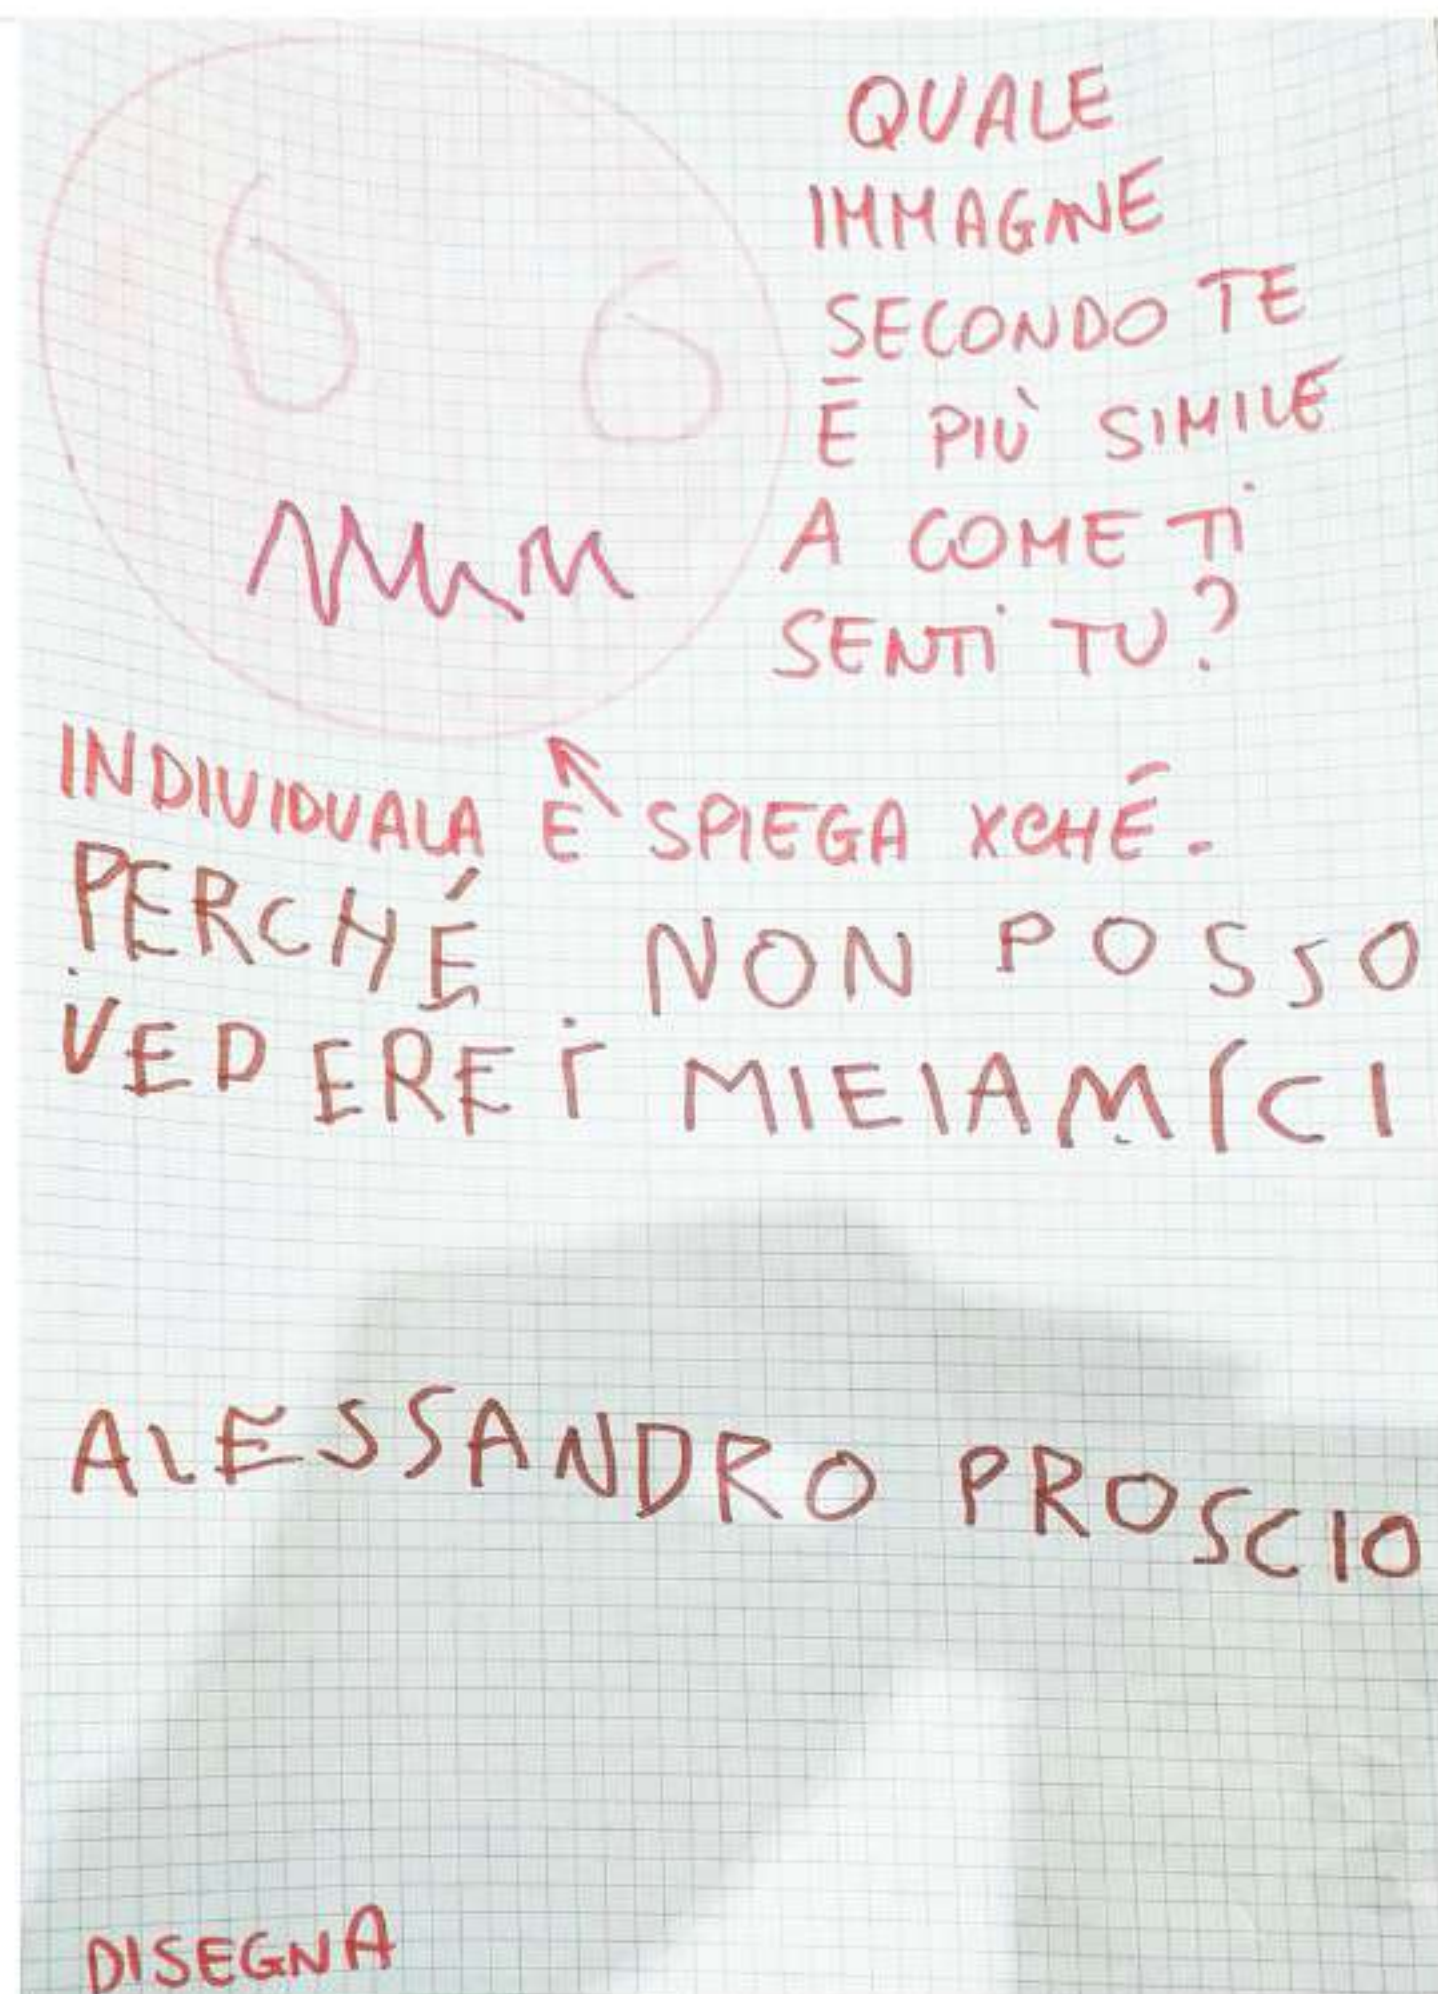 QUALE
IMMAGINE
SECONDO TE
È PIÙ SIMILE
A COME TI
SENTI TU?
INDIVIDUALA E SPIEGA XCHÉ.
PERCHÉ NON POSSO
VEDERE I MIEI AMICI
ALESSANDRO PROSCIO
DISEGNA